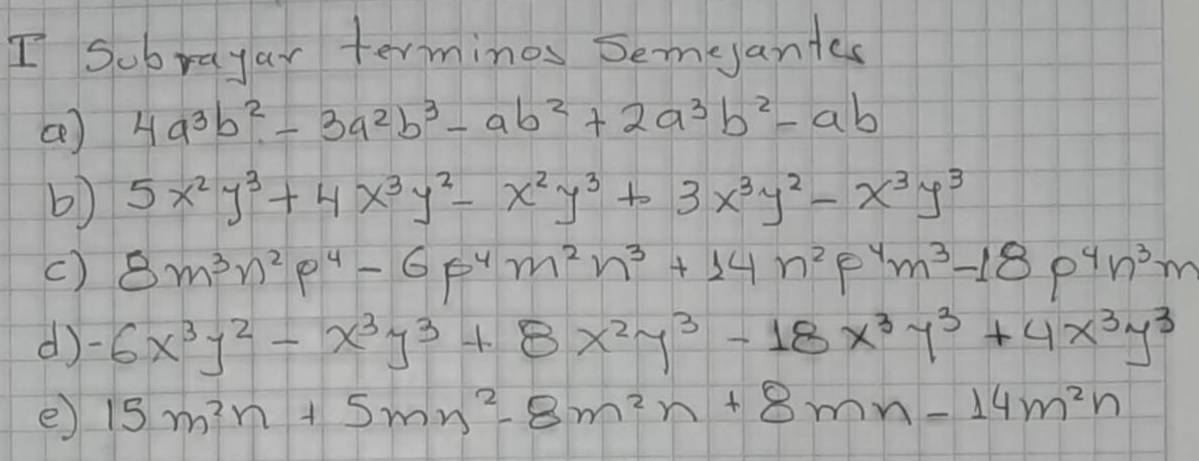 I Subrayar terminos Semejantes
a) 4a³b² - 3a²b³ - ab² + 2a³b² - ab
b) 5x²y³ + 4x³y² - x²y³ + 3x³y² - x³y³
c) 8m³n²p⁴ - 6p⁴m²n³ + 14n²p⁴m³ - 18p⁴n³m
d) -6x³y² - x³y³ + 8x²y³ - 18x³y³ + 4x³y³
e) 15m²n + 5mn² - 8m²n + 8mn - 14m²n